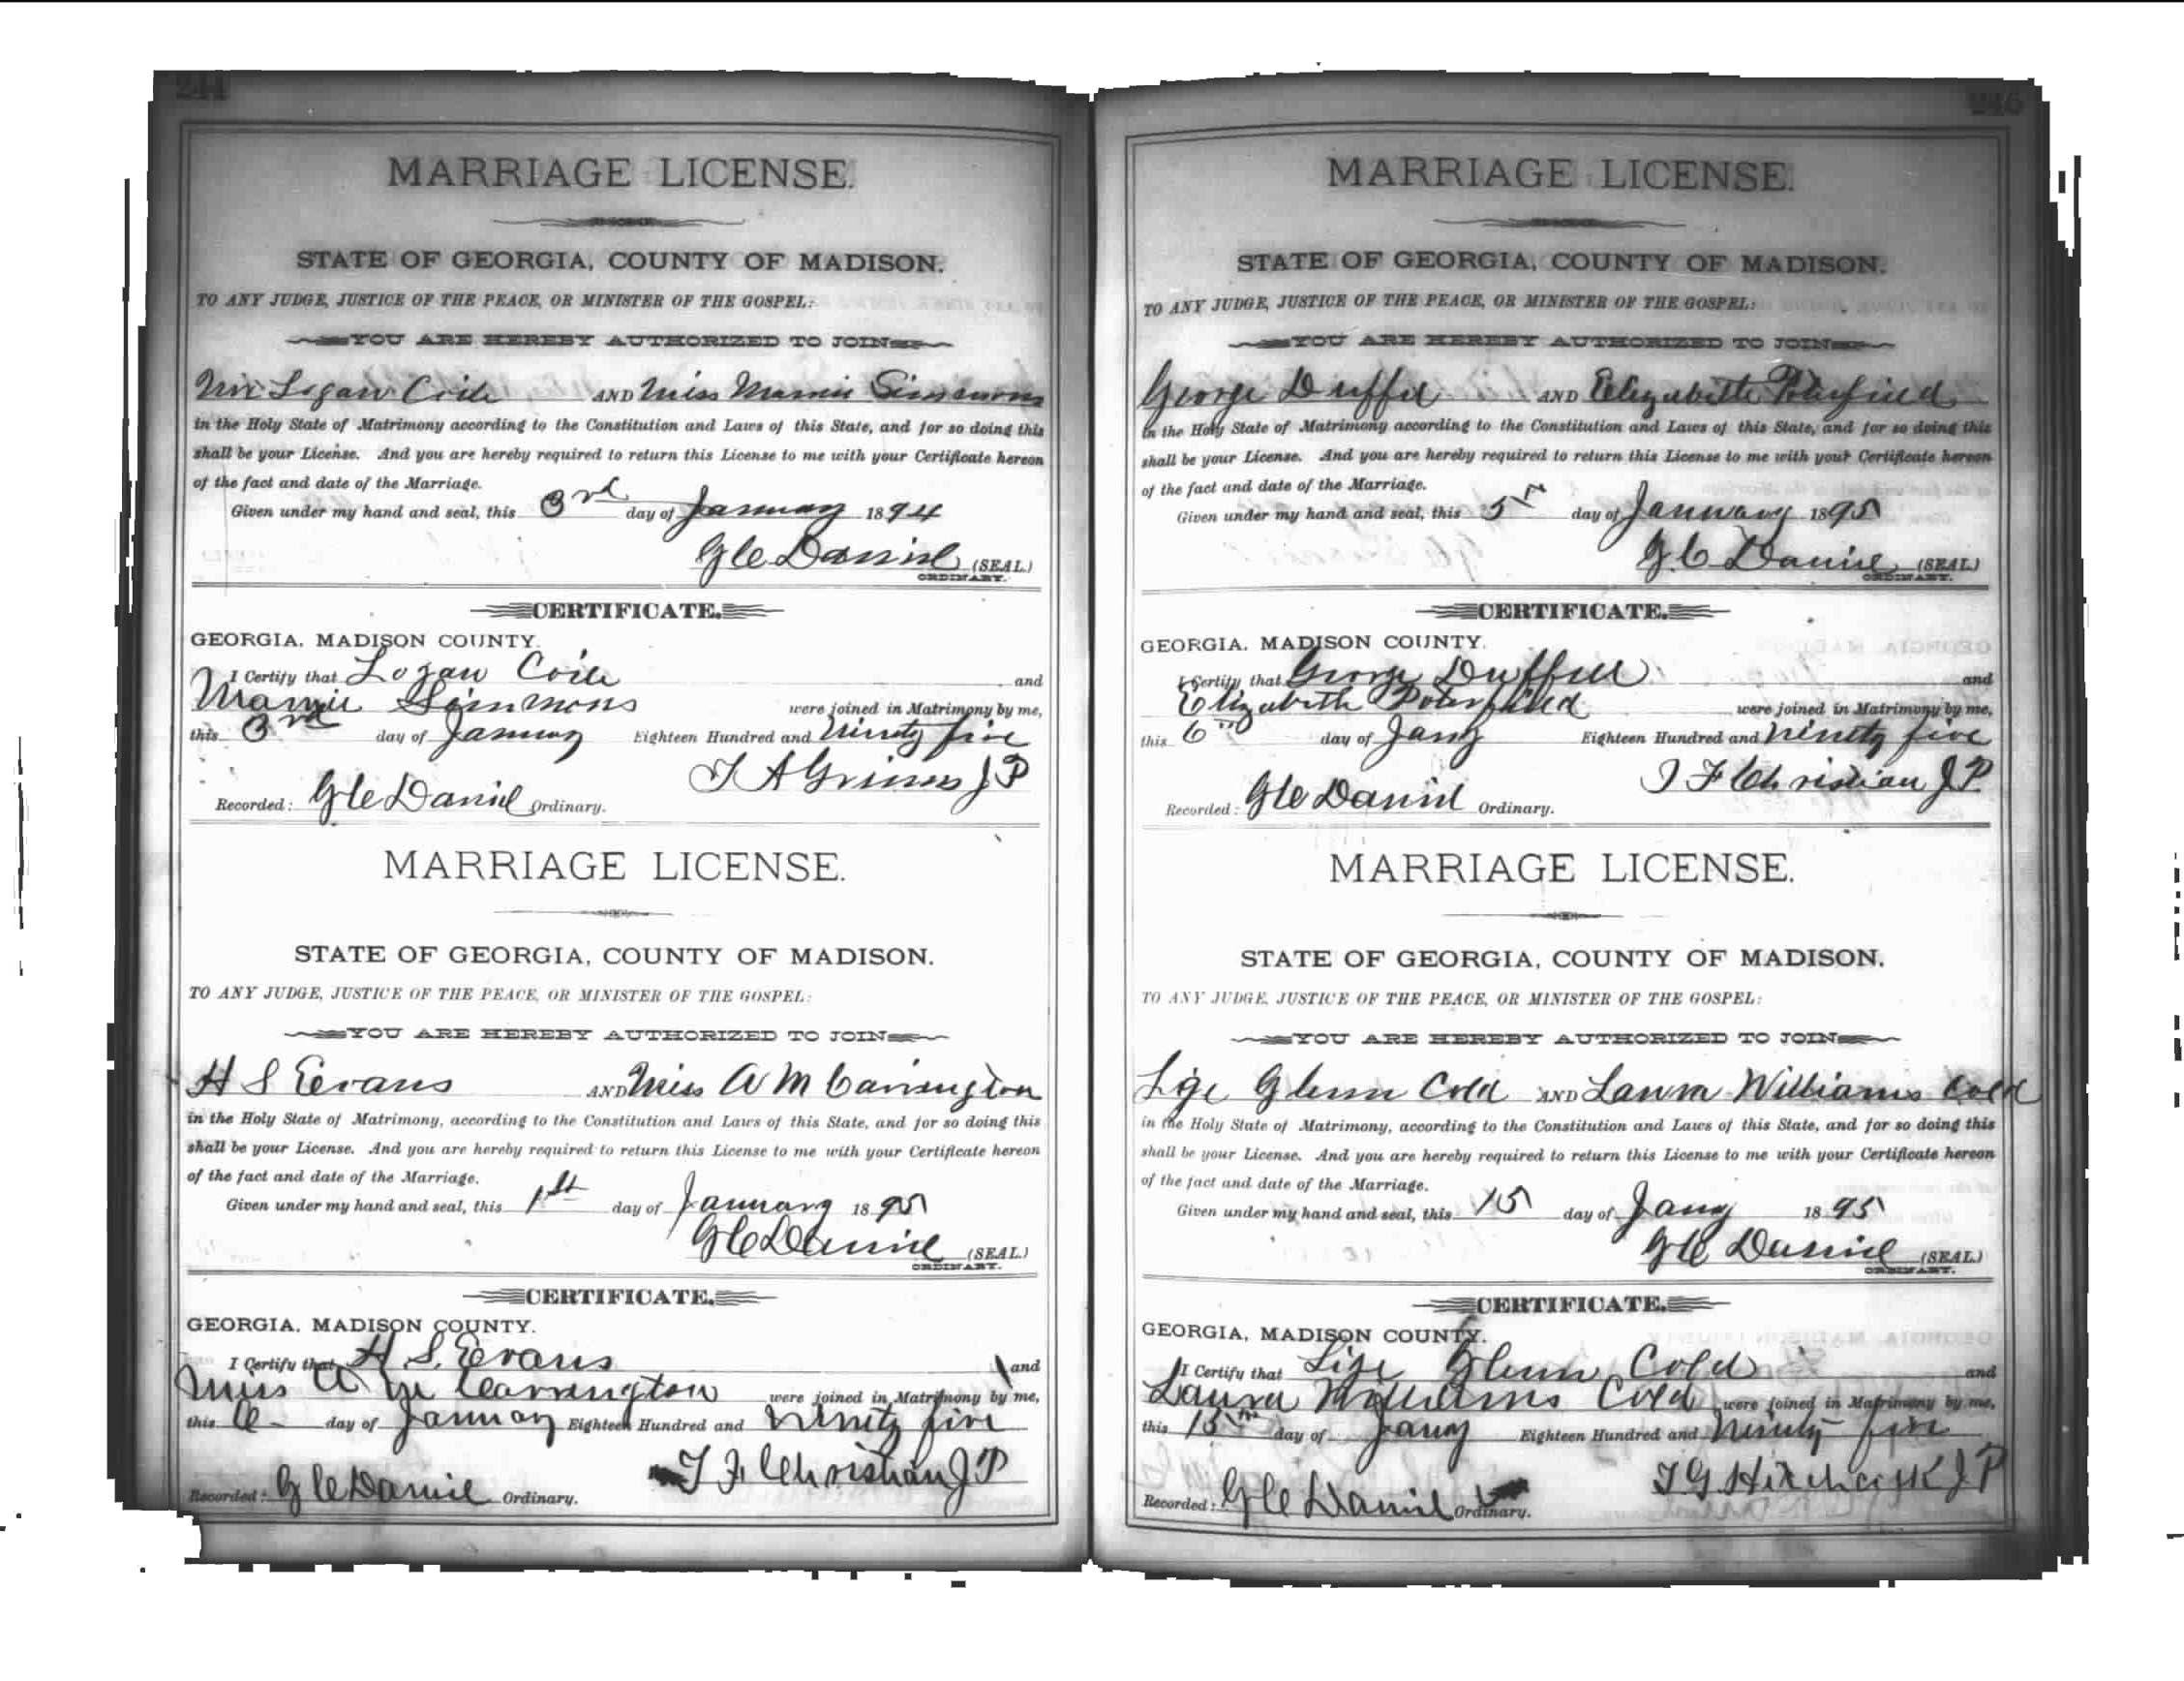 244
MARRIAGE LICENSE.
STATE OF GEORGIA, COUNTY OF MADISON.
TO ANY JUDGE, JUSTICE OF THE PEACE, OR MINISTER OF THE GOSPEL:
YOU ARE HEREBY AUTHORIZED TO JOIN
Mr Logan Coile AND Miss Mamie Simmons
in the Holy State of Matrimony according to the Constitution and Laws of this State, and for so doing this
shall be your License. And you are hereby required to return this License to me with your Certificate hereon
of the fact and date of the Marriage.
Given under my hand and seal, this 3rd day of January 1894
G C Daniel (SEAL)
ORDINARY.
CERTIFICATE.
GEORGIA, MADISON COUNTY.
I Certify that Logan Coile and
Mamie Simmons were joined in Matrimony by me,
this 3rd day of January Eighteen Hundred and Ninety five
T A Grimes J P
Recorded: G C Daniel Ordinary.
MARRIAGE LICENSE.
STATE OF GEORGIA, COUNTY OF MADISON.
TO ANY JUDGE, JUSTICE OF THE PEACE, OR MINISTER OF THE GOSPEL:
YOU ARE HEREBY AUTHORIZED TO JOIN
H S Evans AND Miss A M Carrington
in the Holy State of Matrimony, according to the Constitution and Laws of this State, and for so doing this
shall be your License. And you are hereby required to return this License to me with your Certificate hereon
of the fact and date of the Marriage.
Given under my hand and seal, this 1st day of January 1895
G C Daniel (SEAL)
ORDINARY.
CERTIFICATE.
GEORGIA, MADISON COUNTY.
I Certify that H S. Evans and
Miss A M Carrington were joined in Matrimony by me,
this 6 day of January Eighteen Hundred and Ninety five
T F Christian J P
Recorded: G C Daniel Ordinary.
MARRIAGE LICENSE.
STATE OF GEORGIA, COUNTY OF MADISON.
TO ANY JUDGE, JUSTICE OF THE PEACE, OR MINISTER OF THE GOSPEL:
YOU ARE HEREBY AUTHORIZED TO JOIN
George Duffel AND Elizabeth Poterfield
in the Holy State of Matrimony according to the Constitution and Laws of this State, and for so doing this
shall be your License. And you are hereby required to return this License to me with your Certificate hereon
of the fact and date of the Marriage.
Given under my hand and seal, this 5th day of January 1895
G C Daniel (SEAL)
ORDINARY.
CERTIFICATE.
GEORGIA, MADISON COUNTY.
I Certify that George Duffell and
Elizabeth Poterfield were joined in Matrimony by me,
this 6th day of Jany Eighteen Hundred and Ninety five
T F Christian J P
Recorded: G C Daniel Ordinary.
MARRIAGE LICENSE.
STATE OF GEORGIA, COUNTY OF MADISON.
TO ANY JUDGE, JUSTICE OF THE PEACE, OR MINISTER OF THE GOSPEL:
YOU ARE HEREBY AUTHORIZED TO JOIN
Lige Glenn Cold AND Laura Williams Cold
in the Holy State of Matrimony, according to the Constitution and Laws of this State, and for so doing this
shall be your License. And you are hereby required to return this License to me with your Certificate hereon
of the fact and date of the Marriage.
Given under my hand and seal, this 15 day of Jany 1895
G C Daniel (SEAL)
ORDINARY.
CERTIFICATE.
GEORGIA, MADISON COUNTY.
I Certify that Lige Glenn Cold and
Laura Williams Cold were joined in Matrimony by me,
this 15th day of Jany Eighteen Hundred and Ninety five
T G Hitchcock J P
Recorded: G C Daniel Ordinary.